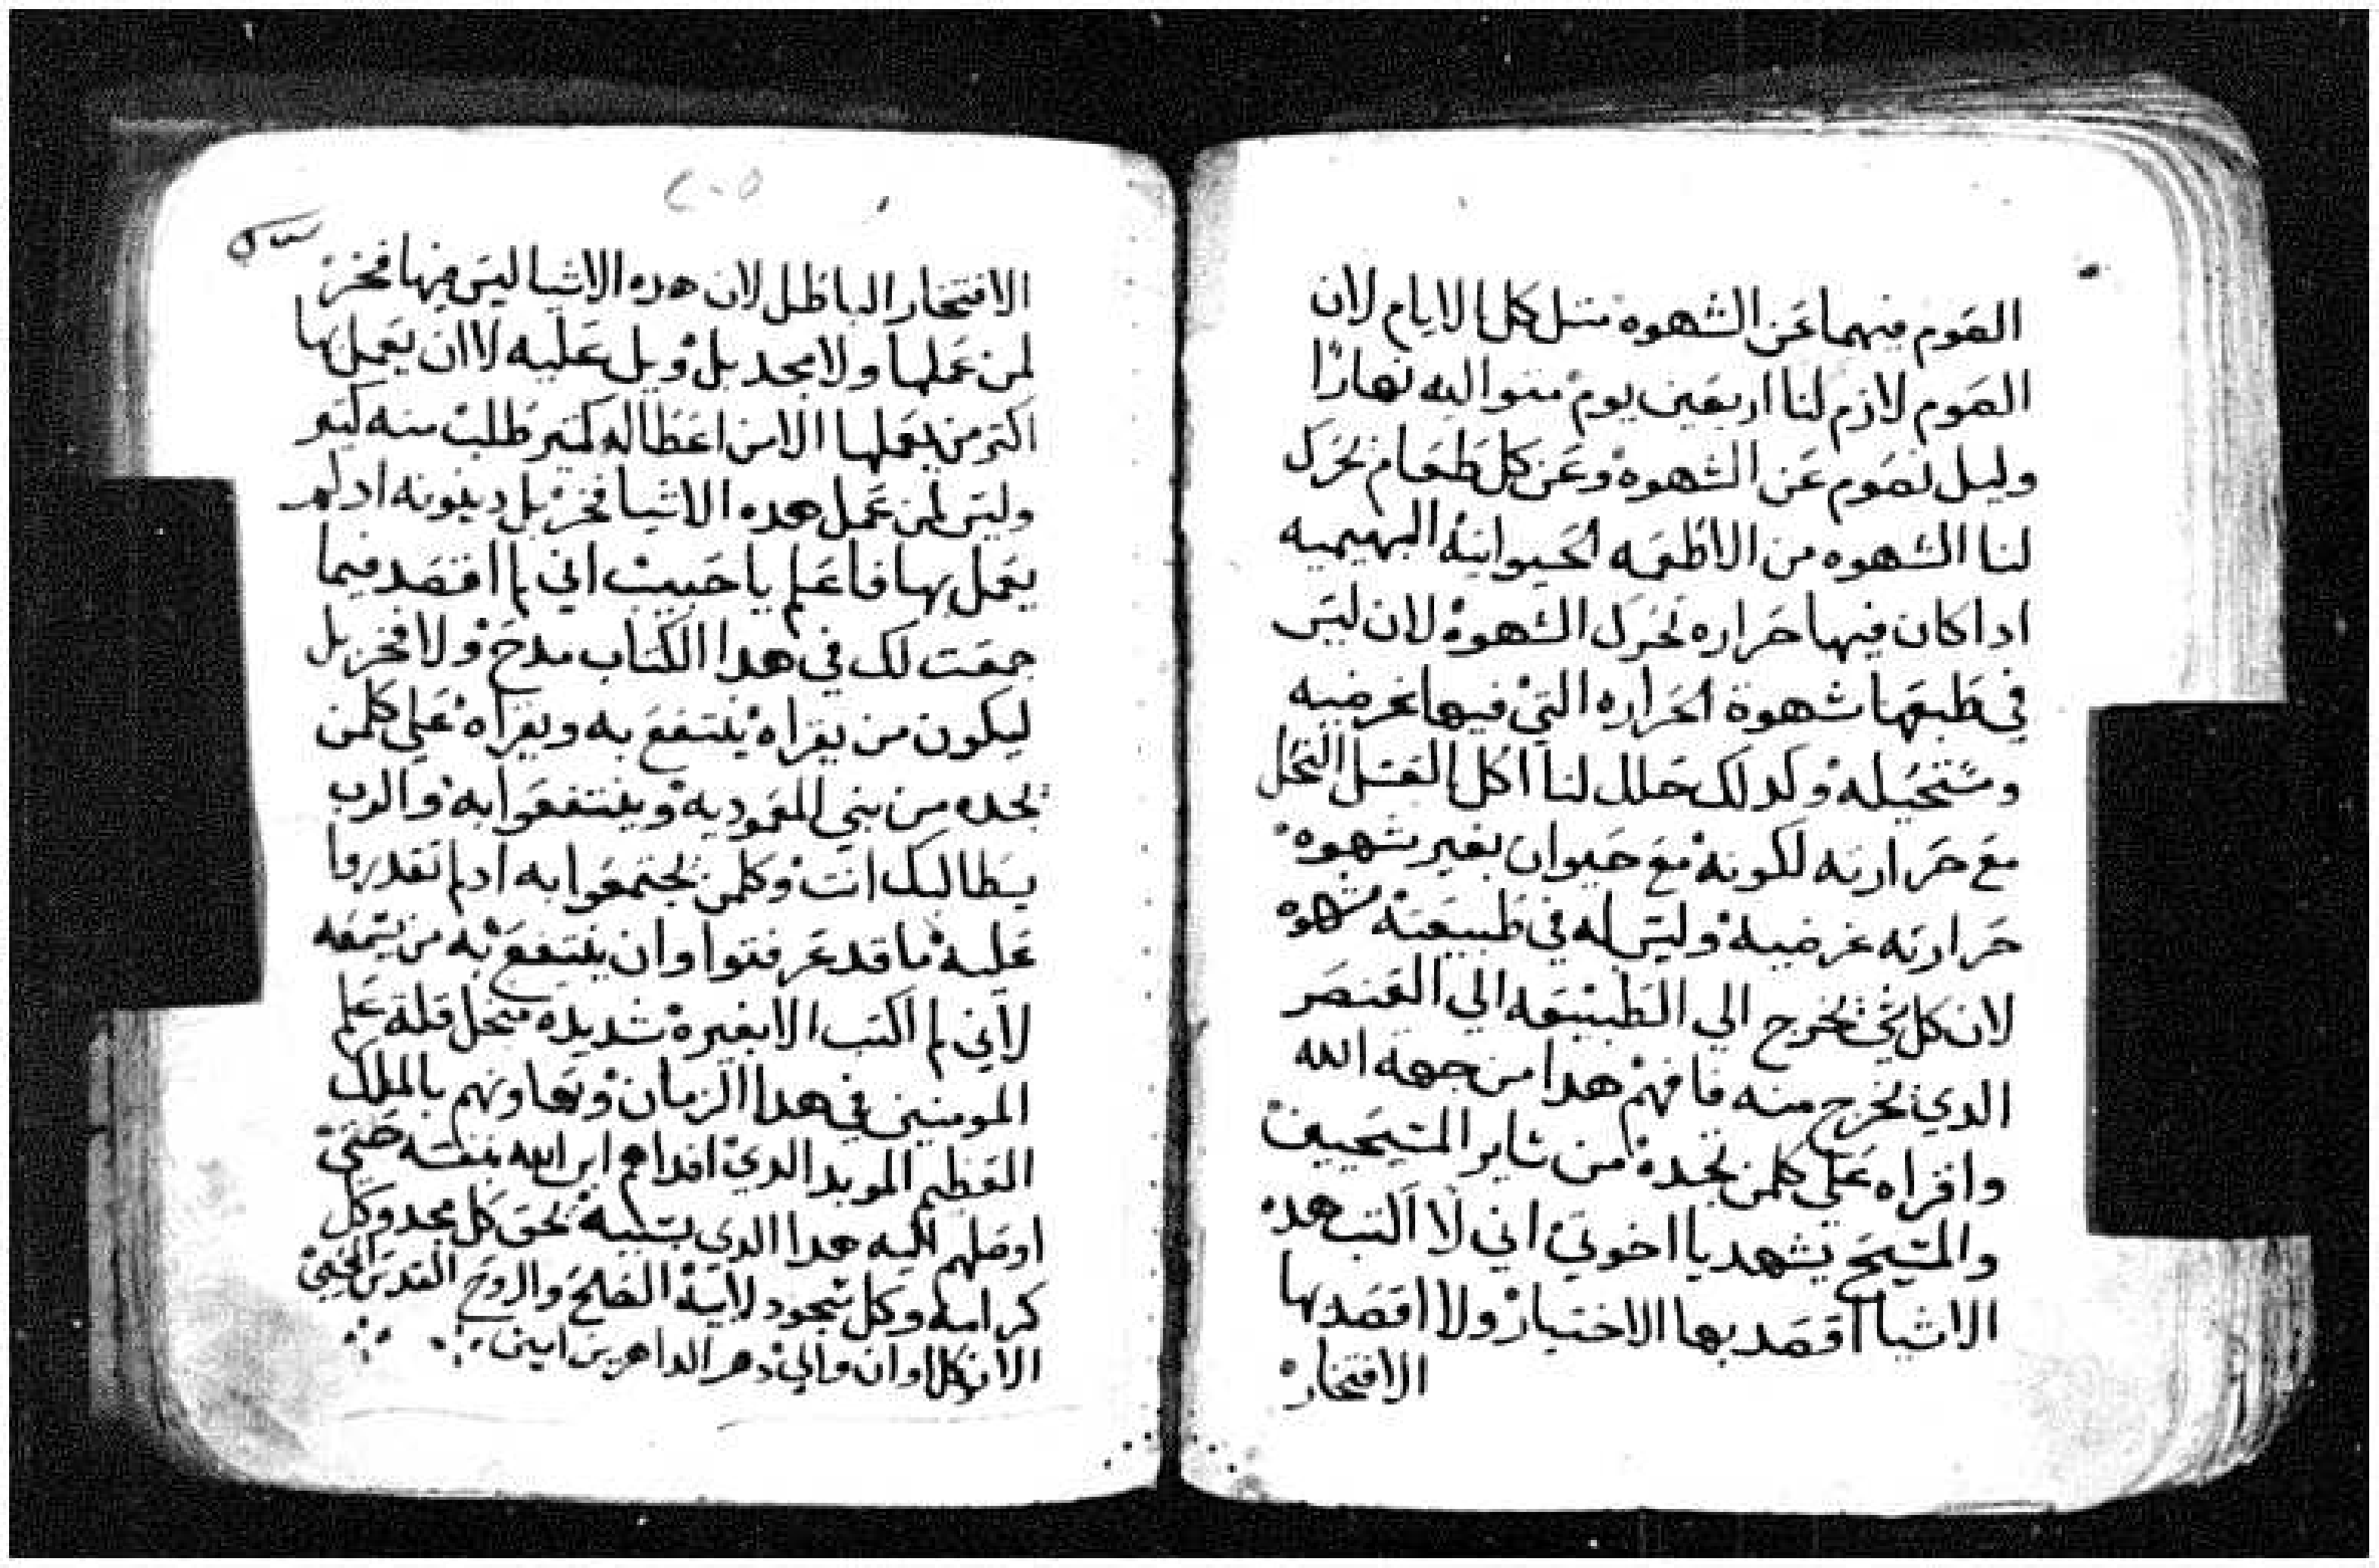 الصوم فيهما عن الشهوه متل كل الايام لان
الصوم لازم لنا اربعين يوم متواليه نهارًا
وليل نصوم عن الشهوه وعن كل طعام يحرك
لنا الشهوه من الاطعمه الحيوانيه البهيميه
اداكان فيها حراره تحرك الشهوه لان ليس
في طبعها شهوة الحراره التي فيها عرضيه
ومستحيله وكدلك حلل لنا اكل العسل النحل
مع حرارته لكونه مع حيوان بغير شهوه
حرارته عرضيه وليس له في طبيعته شهوه
لان كل شي يخرج الي الطبيعه الي العنصر
الدي يخرج منه فافهم هدا من جهة الله
واقراه علي كلمن تجده من ساير المسيحيين
والمسيح يشهد يا اخوتي اني لا اكتب هده
الاشيا اقصد بها الاختيار ولا اقصد بها
الافتخار
٢٠٥
الافتخار الباطل لان هده الاشيا ليس فيها فخر
لمن عملها ولا مجد بل ويل عليه لا ان يعمل بها
اكتر من يعملها الامن اعطا له كتير طلب منه كتير
وليس لمن عمل هده الاشيا فخر بل دينونه ادلم
يعمل بها فاعلم يا حبيب اني لم اقصد فيما
جمعت لك في هدا الكتاب مدح ولا فخر بل
ليكون من يقراه ينتفع به ويقراه علي كلمن
يجده من بني المعموديه وينتفعوا به والرب
يطالبك انت وكلمن يجتمعوا به ادلم تقدروا
عليه ما قد عرفتوا وان ينتفع به من يسمعه
لاني لم اكتب الا بغيره شديده منجل قلة علم
المومنين في هدا الزمان وتهاونهم بالملك
العظيم الموبد الدي افداهم ابن الله بنفسه حتي
اوصلهم اليه هدا الدي يستحق كل مجد وكل
كرامه وكل سجود لابيه الصالح والروح القدس المحيي
الان وكل اوان والي دهر الداهرين امين